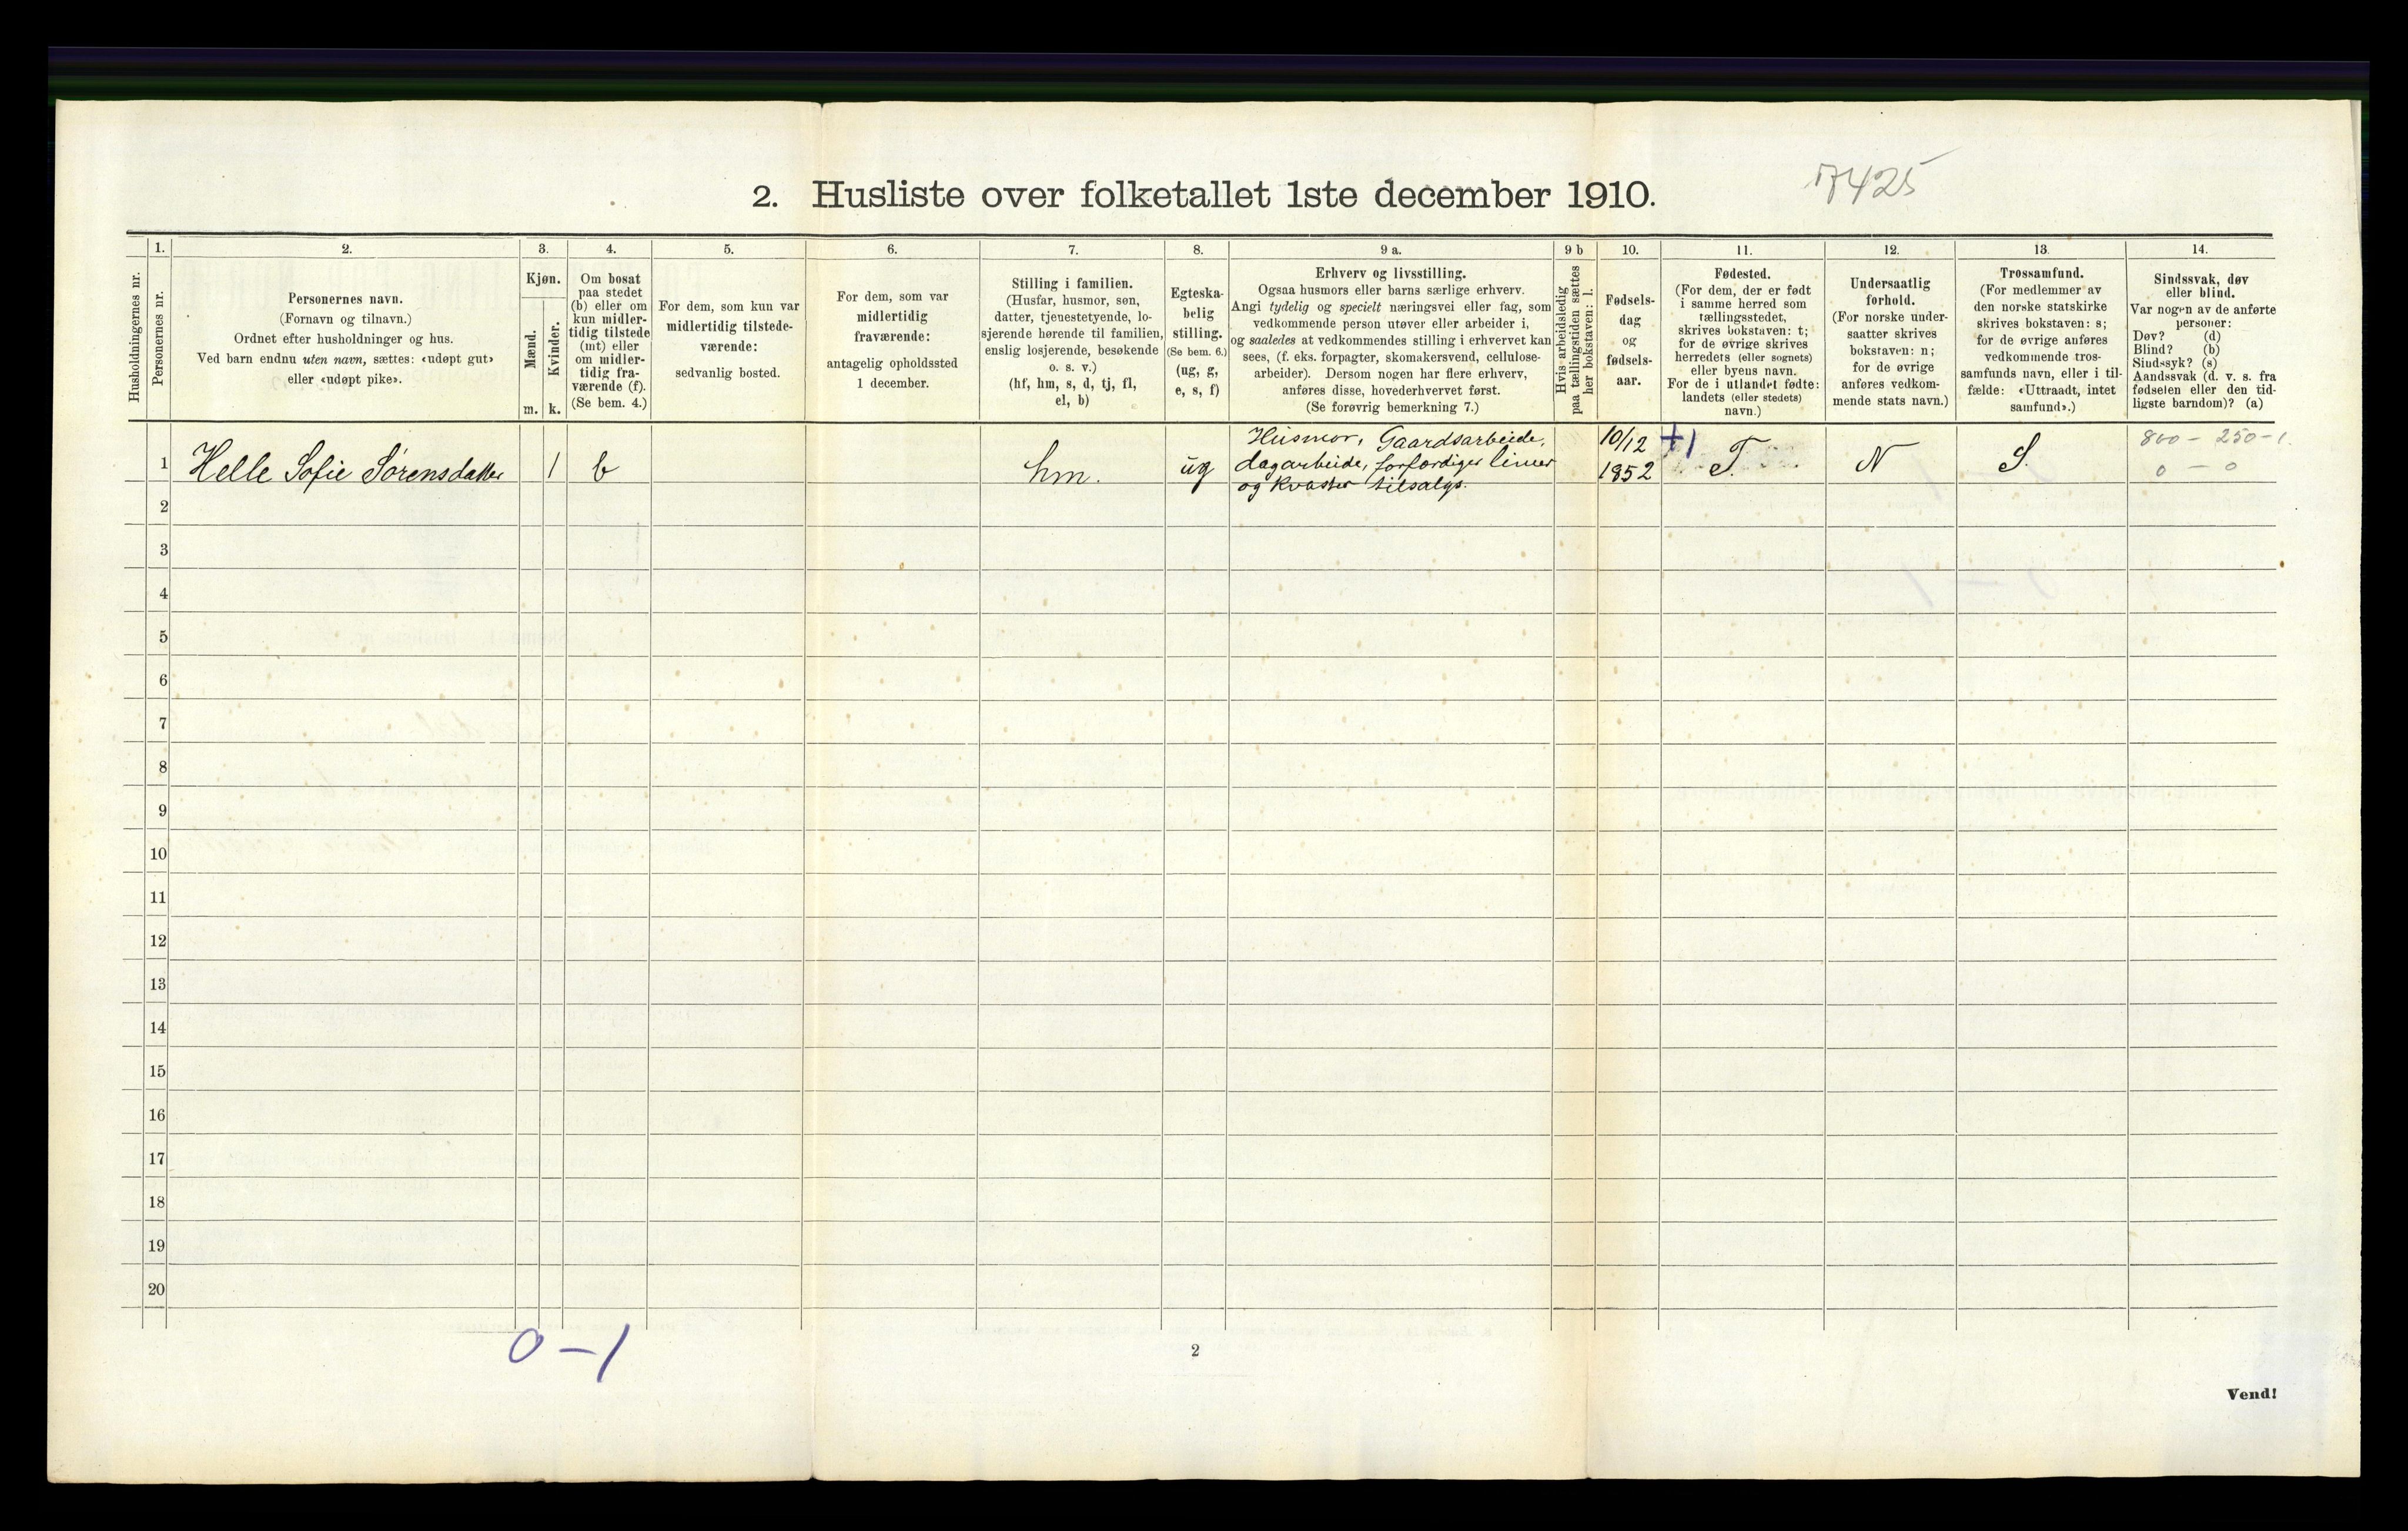 7425
2. Husliste over folketallet 1ste december 1910.
Husholdningernes nr.
1.
Personernes nr.
2.
Personernes navn.
(Fornavn og tilnavn.)
Ordnet efter husholdninger og hus.
Ved barn endnu uten navn, sættes: «udøpt gut»
eller «udøpt pike».
3.
Kjøn.
Mænd.
Kvinder.
m. k.
4.
Om bosat
paa stedet
(b) eller om
kun midler-
tidig tilstede
(mt) eller
om midler-
tidig fra-
værende (f).
(Se bem. 4.)
5.
For dem, som kun var
midlertidig tilstede-
værende:
sedvanlig bosted.
6.
For dem, som var
midlertidig
fraværende:
antagelig opholdssted
1 december.
7.
Stilling i familien.
(Husfar, husmor, søn,
datter, tjenestetyende, lo-
sjerende hørende til familien,
enslig losjerende, besøkende
o. s. v.)
(hf, hm, s, d, tj, fl,
el, b)
8.
Egteska-
belig
stilling.
(Se bem. 6.)
(ug, g,
e, s, f)
9 a.
Erhverv og livsstilling.
Ogsaa husmors eller barns særlige erhverv.
Angi tydelig og specielt næringsvei eller fag, som
vedkommende person utøver eller arbeider i,
og saaledes at vedkommendes stilling i erhvervet kan
sees, (f. eks. forpagter, skomakersvend, cellulose-
arbeider). Dersom nogen har flere erhverv,
anføres disse, hovederhvervet først.
(Se forøvrig bemerkning 7.)
9 b
Hvis arbeidsledig
paa tællingstiden sættes
her bokstaven: l.
10.
Fødsels-
dag
og
fødsels-
aar.
11.
Fødested.
(For dem, der er født
i samme herred som
tællingsstedet,
skrives bokstaven: t;
for de øvrige skrives
herredets (eller sognets)
eller byens navn.
For de i utlandet fødte:
landets (eller stedets)
navn.)
12.
Undersaatlig
forhold.
(For norske under-
saatter skrives
bokstaven: n;
for de øvrige
anføres vedkom-
mende stats navn.)
13.
Trossamfund.
(For medlemmer av
den norske statskirke
skrives bokstaven: s;
for de øvrige anføres
vedkommende tros-
samfunds navn, eller i til-
fælde: «Uttraadt, intet
samfund».)
14.
Sindssvak, døv
eller blind.
Var nogen av de anførte
personer:
Døv? (d)
Blind? (b)
Sindssyk? (s)
Aandssvak (d. v. s. fra
fødselen eller den tid-
ligste barndom)? (a)
1 Helle Sofie Sørensdatter 1 b hm. ug
Husmor, Gaardsarbeide,
dagarbeide, forfærdiger limer
og kvaster tilsalgs.
10/12
1852
+1
T. N S.
800 - 250-1.
0 - 0
2
3
4
5
6
7
8
9
10
11
12
13
14
15
16
17
18
19
20
0-1
2
Vend!